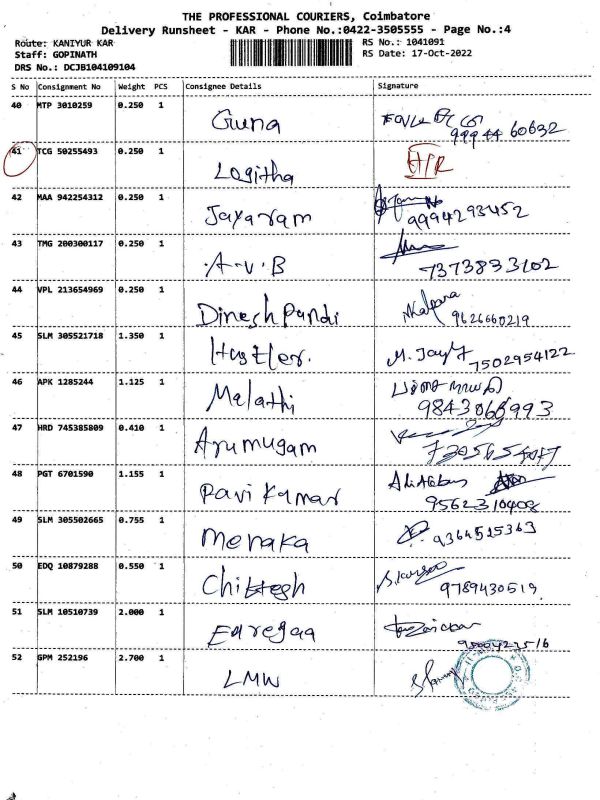 THE PROFESSIONAL COURIERS, Coimbatore
Delivery Runsheet - KAR - Phone No.:0422-3505555 - Page No.:4
Route: KANIYUR KAR RS No.: 1041091
Staff: GOPINATH RS Date: 17-Oct-2022
DRS No.: DCJB104109104
S No Consignment No Weight PCS Consignee Details Signature
40 MTP 3010259 0.250 1 Guna
99944 60632
41 TCG 50255493 0.250 1 Logitha
42 MAA 942254312 0.250 1 Jayaram 9994293452
43 TMG 200300117 0.250 1 A.V.B
7373833102
44 VPL 213654969 0.250 1 Dinesh Pandi Kalpana
9626660219
45 SLM 305521718 1.350 1 Hustler. 7502954122
46 APK 1285244 1.125 1 Malathi
9843066993
47 HRD 745385809 0.410 1 Arumugam
48 PGT 6701590 1.155 1 Ravi Kumar
9562310408
49 SLM 305502665 0.755 1 Menaka 9364525363
50 EDQ 10879288 0.550 1 Chittesh 9789430519
51 SLM 10510739 2.000 1
52 GPM 252196 2.700 1 LMW